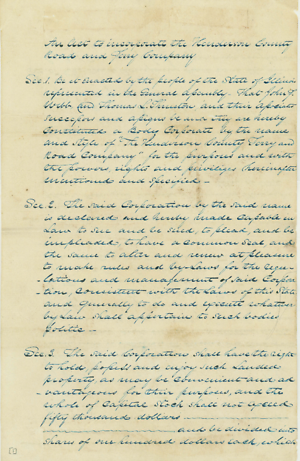 An Act to incorporate the Henderson County
Road and Ferry Company
Sec 1. Be it enacted by the people of the State of Illinois
represented in the General Assembly. That John S.
Webb and Thomas L. and their associates
successors and assigns be and they are hereby
Constituted a Body Corporate by the name
and style of "The Henderson County Ferry and
Road Company" for the purposes and with
the powers, rights and privileges hereinafter
mentioned and specified –
Sec 2. The said Corporation by the said name
is declared and hereby made capable in
law to sue and be sued, to plead, and be
impleaded, to have a Common Seal and
the same to alter and renew at pleasure
to make rules and by Laws for the regu-
-lations and management of said Corpora
tion, Consistent with the Laws of this State
and Generally to do and execute whatever
by Law shall appertain to such bodies
politic –
Sec 3. The said Corporation shall have the right
to hold possess and enjoy such Landed
property as may be Convenient and ad
-vantageous for their purposes, and the
whole of Capital Stock shall not exceed
fifty thousand dollars
and be divided into
shares of one hundred dollars each, which